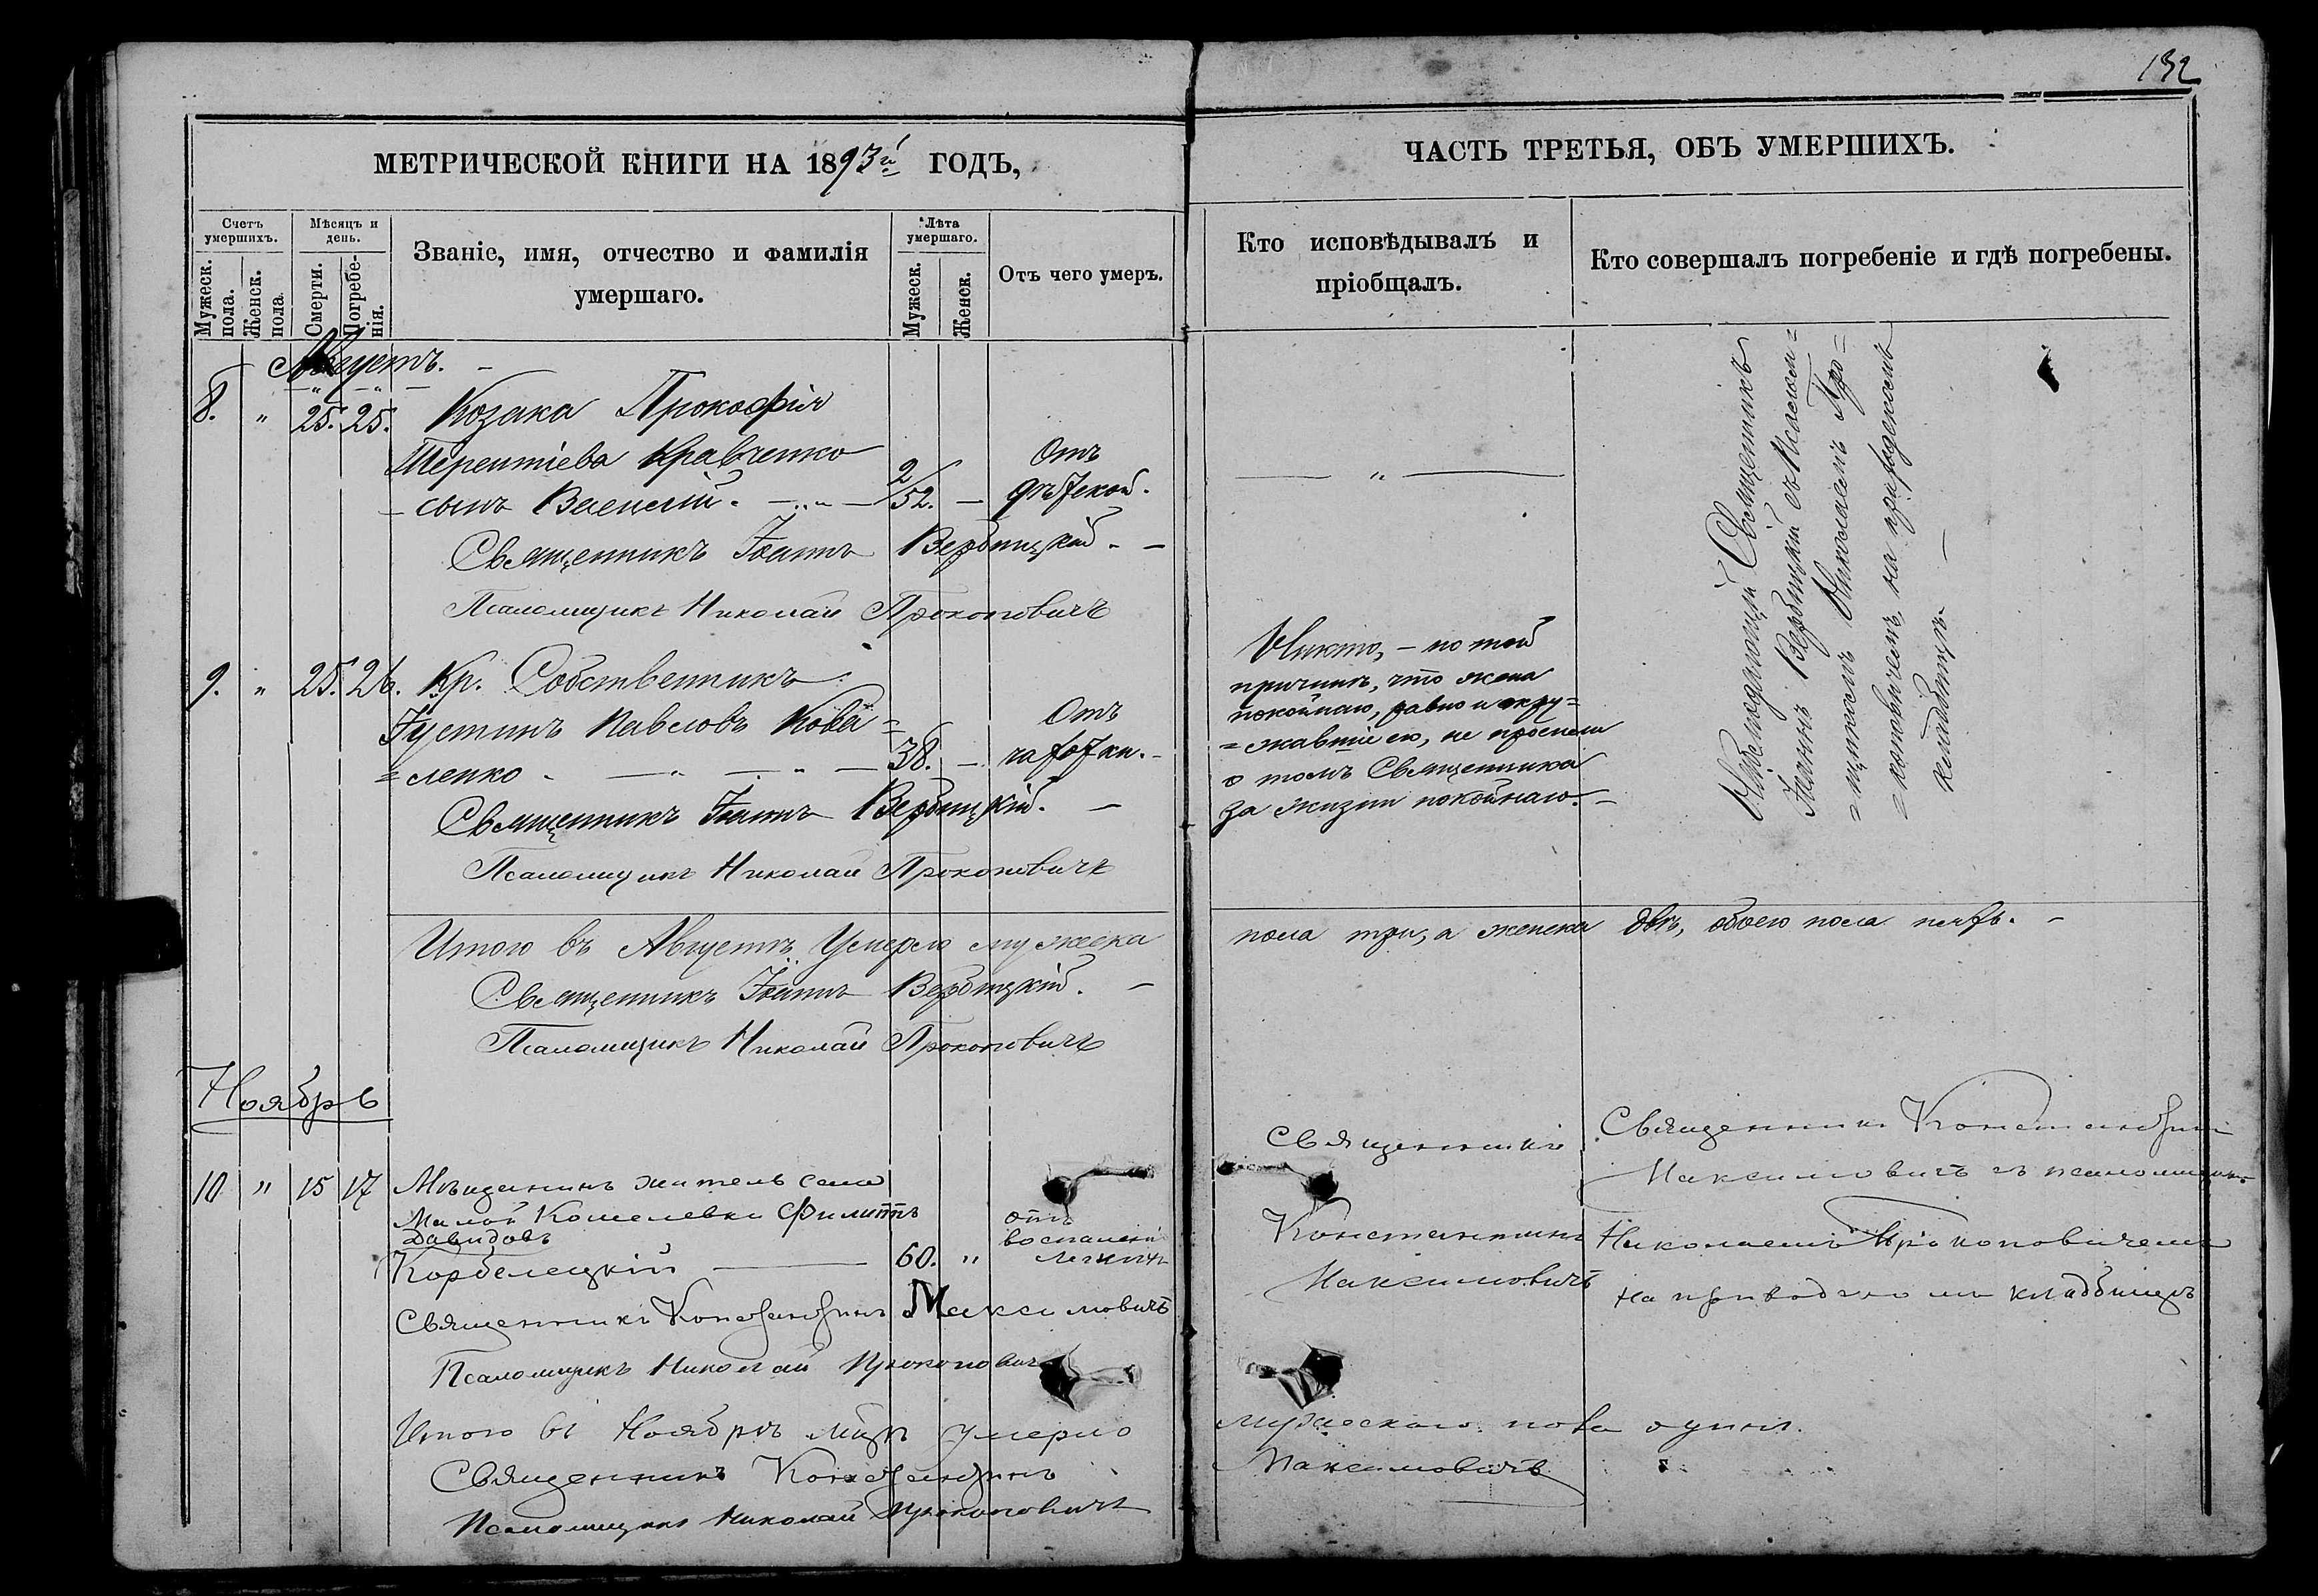 132
МЕТРИЧЕСКОЙ КНИГИ НА 1893й ГОДЪ,
ЧАСТЬ ТРЕТЬЯ, ОБЪ УМЕРШИХЪ.
Счетъ умершихъ.
Мужеск. пола.
Женск. пола.
Мѣсяцъ и день.
Смерти.
Погребенія.
Званіе, имя, отчество и фамилія
умершаго.
Лѣта умершаго.
Мужеск.
Женск.
Отъ чего умеръ.
Кто исповѣдывалъ и
пріобщалъ.
Кто совершалъ погребеніе и гдѣ погребены.
Августъ.
8. " 25. 25. Козака Прокофія
Терентіева Кравченко
сынъ Василій. 2/52. —
Отъ
Священникъ Іоаннъ Вербицкій.
Псаломщикъ Николай Прокоповичъ
9. " 25. 26. Кр. Собственникъ
Густинъ Павловъ Кова=
=ленко 38. —
Отъ
чахотки.
Священникъ Іоаннъ Вербицкій.
Псаломщикъ Николай Прокоповичъ
Никто, — по той
причинѣ, что жена
покойнаго, равно и окру=
=жавшіе его, не просили
о томъ Священника
за жизни покойнаго.
Священникъ
Іоаннъ Вербицкій съ Псалом=
=щикомъ Николаемъ Про=
=коповичемъ на приходскомъ
кладбищѣ.
Итого въ Августѣ умерло мужеска
пола три, а женска двѣ, обоего пола пять.
Священникъ Іоаннъ Вербицкій.
Псаломщикъ Николай Прокоповичъ
Ноябрь
10 " 15 17 Мѣщанинъ житель села
Малой Кошелевки Филиппъ
Давидовъ
Корбелецкій 60. "
отъ
воспаленія
легкихъ
Священникъ Константинъ Максимовичъ
Псаломщикъ Николай Прокоповичъ
Священникъ
Константинъ
Максимовичъ
Священникъ Константинъ
Максимовичъ съ псаломщик.
Николаемъ Прокоповичемъ
на приходскомъ кладбищѣ
Итого въ Ноябрѣ мцѣ умерло
мужескаго пола одинъ.
Священникъ Константинъ
Максимовичъ
Псаломщикъ Николай Прокоповичъ